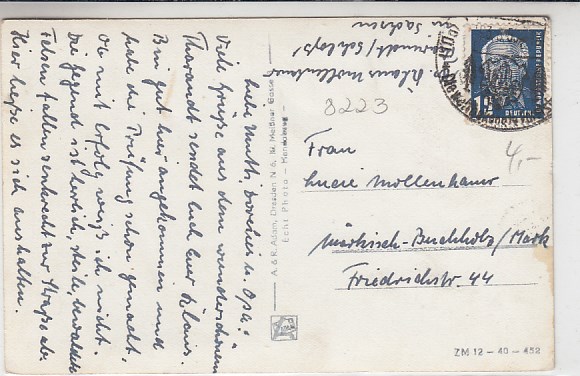 Liebe Mutti, Brüder u. Opa!
Viele Grüße aus dem wunderschönen
Tharandt sendet Euch Euer Klaus.
Bin gut hier angekommen und
habe die Prüfung schon gemacht.
Ob mit Erfolg weiß ich nicht.
Die Gegend ist herrlich, steile, bewaldete
Felsen fallen senkrecht zur Straße ab.
Hier ließe es sich aushalten.
A. & R. Adam, Dresden N 6, Meißner Gasse
Echt Photo - Handabzug -
Klaus Mollenhauer
Tharandt/Schloß
in Sachsen
12
8223
4,-
Frau
Lucie Mollenhauer
Märkisch-Buchholz/Mark
Friedrichstr. 44
ZM 12 - 40 - 452